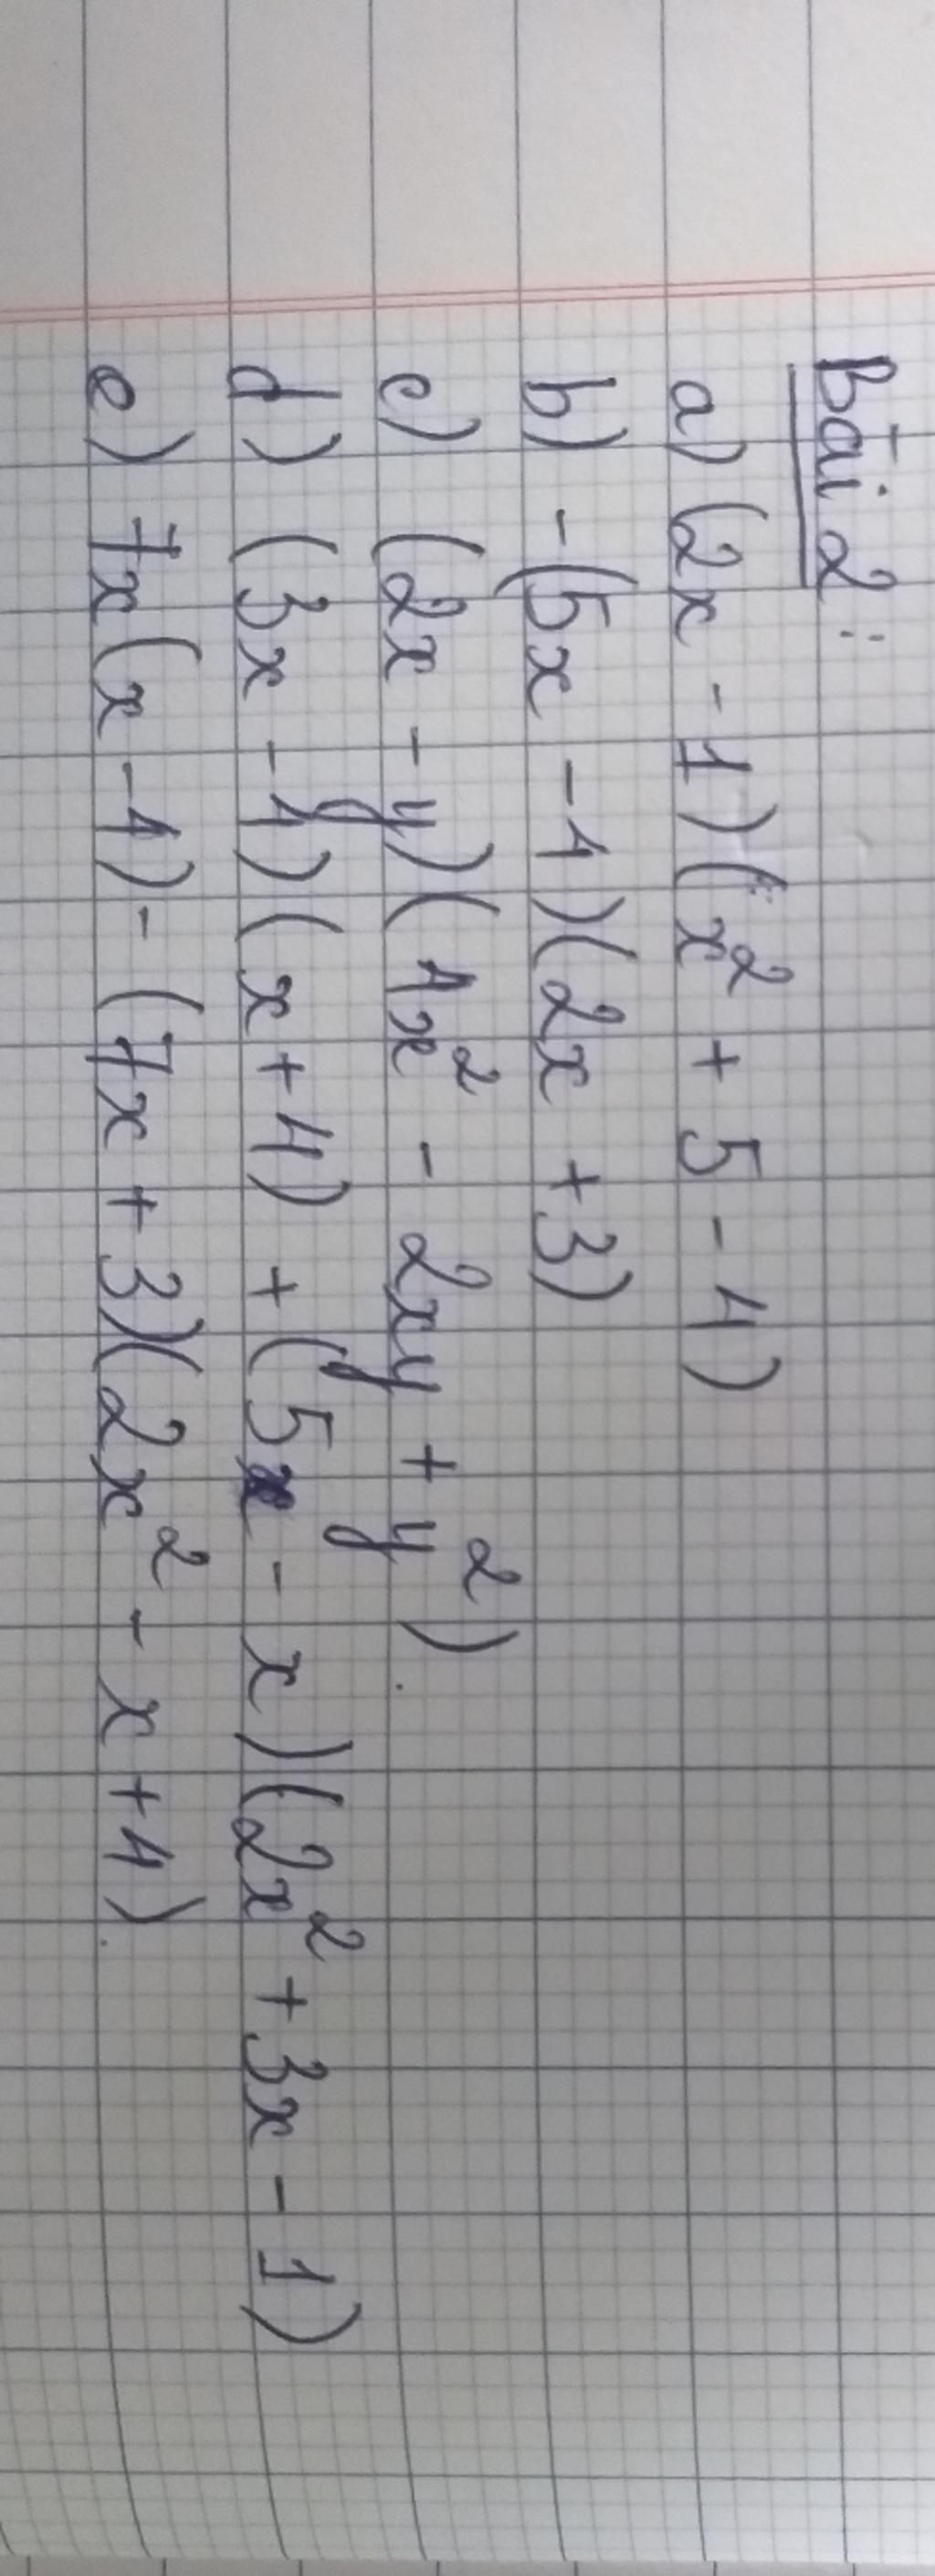 Bài 2:
a) (2x - 1)(x² + 5 - 4)
b) -(5x - 4)(2x + 3)
c) (2x - y)(4x² - 2xy + y²).
d) (3x - 4)(x + 4) + (5x - x)(2x² + 3x - 1)
e) 7x(x - 4) - (7x + 3)(2x² - x + 4).